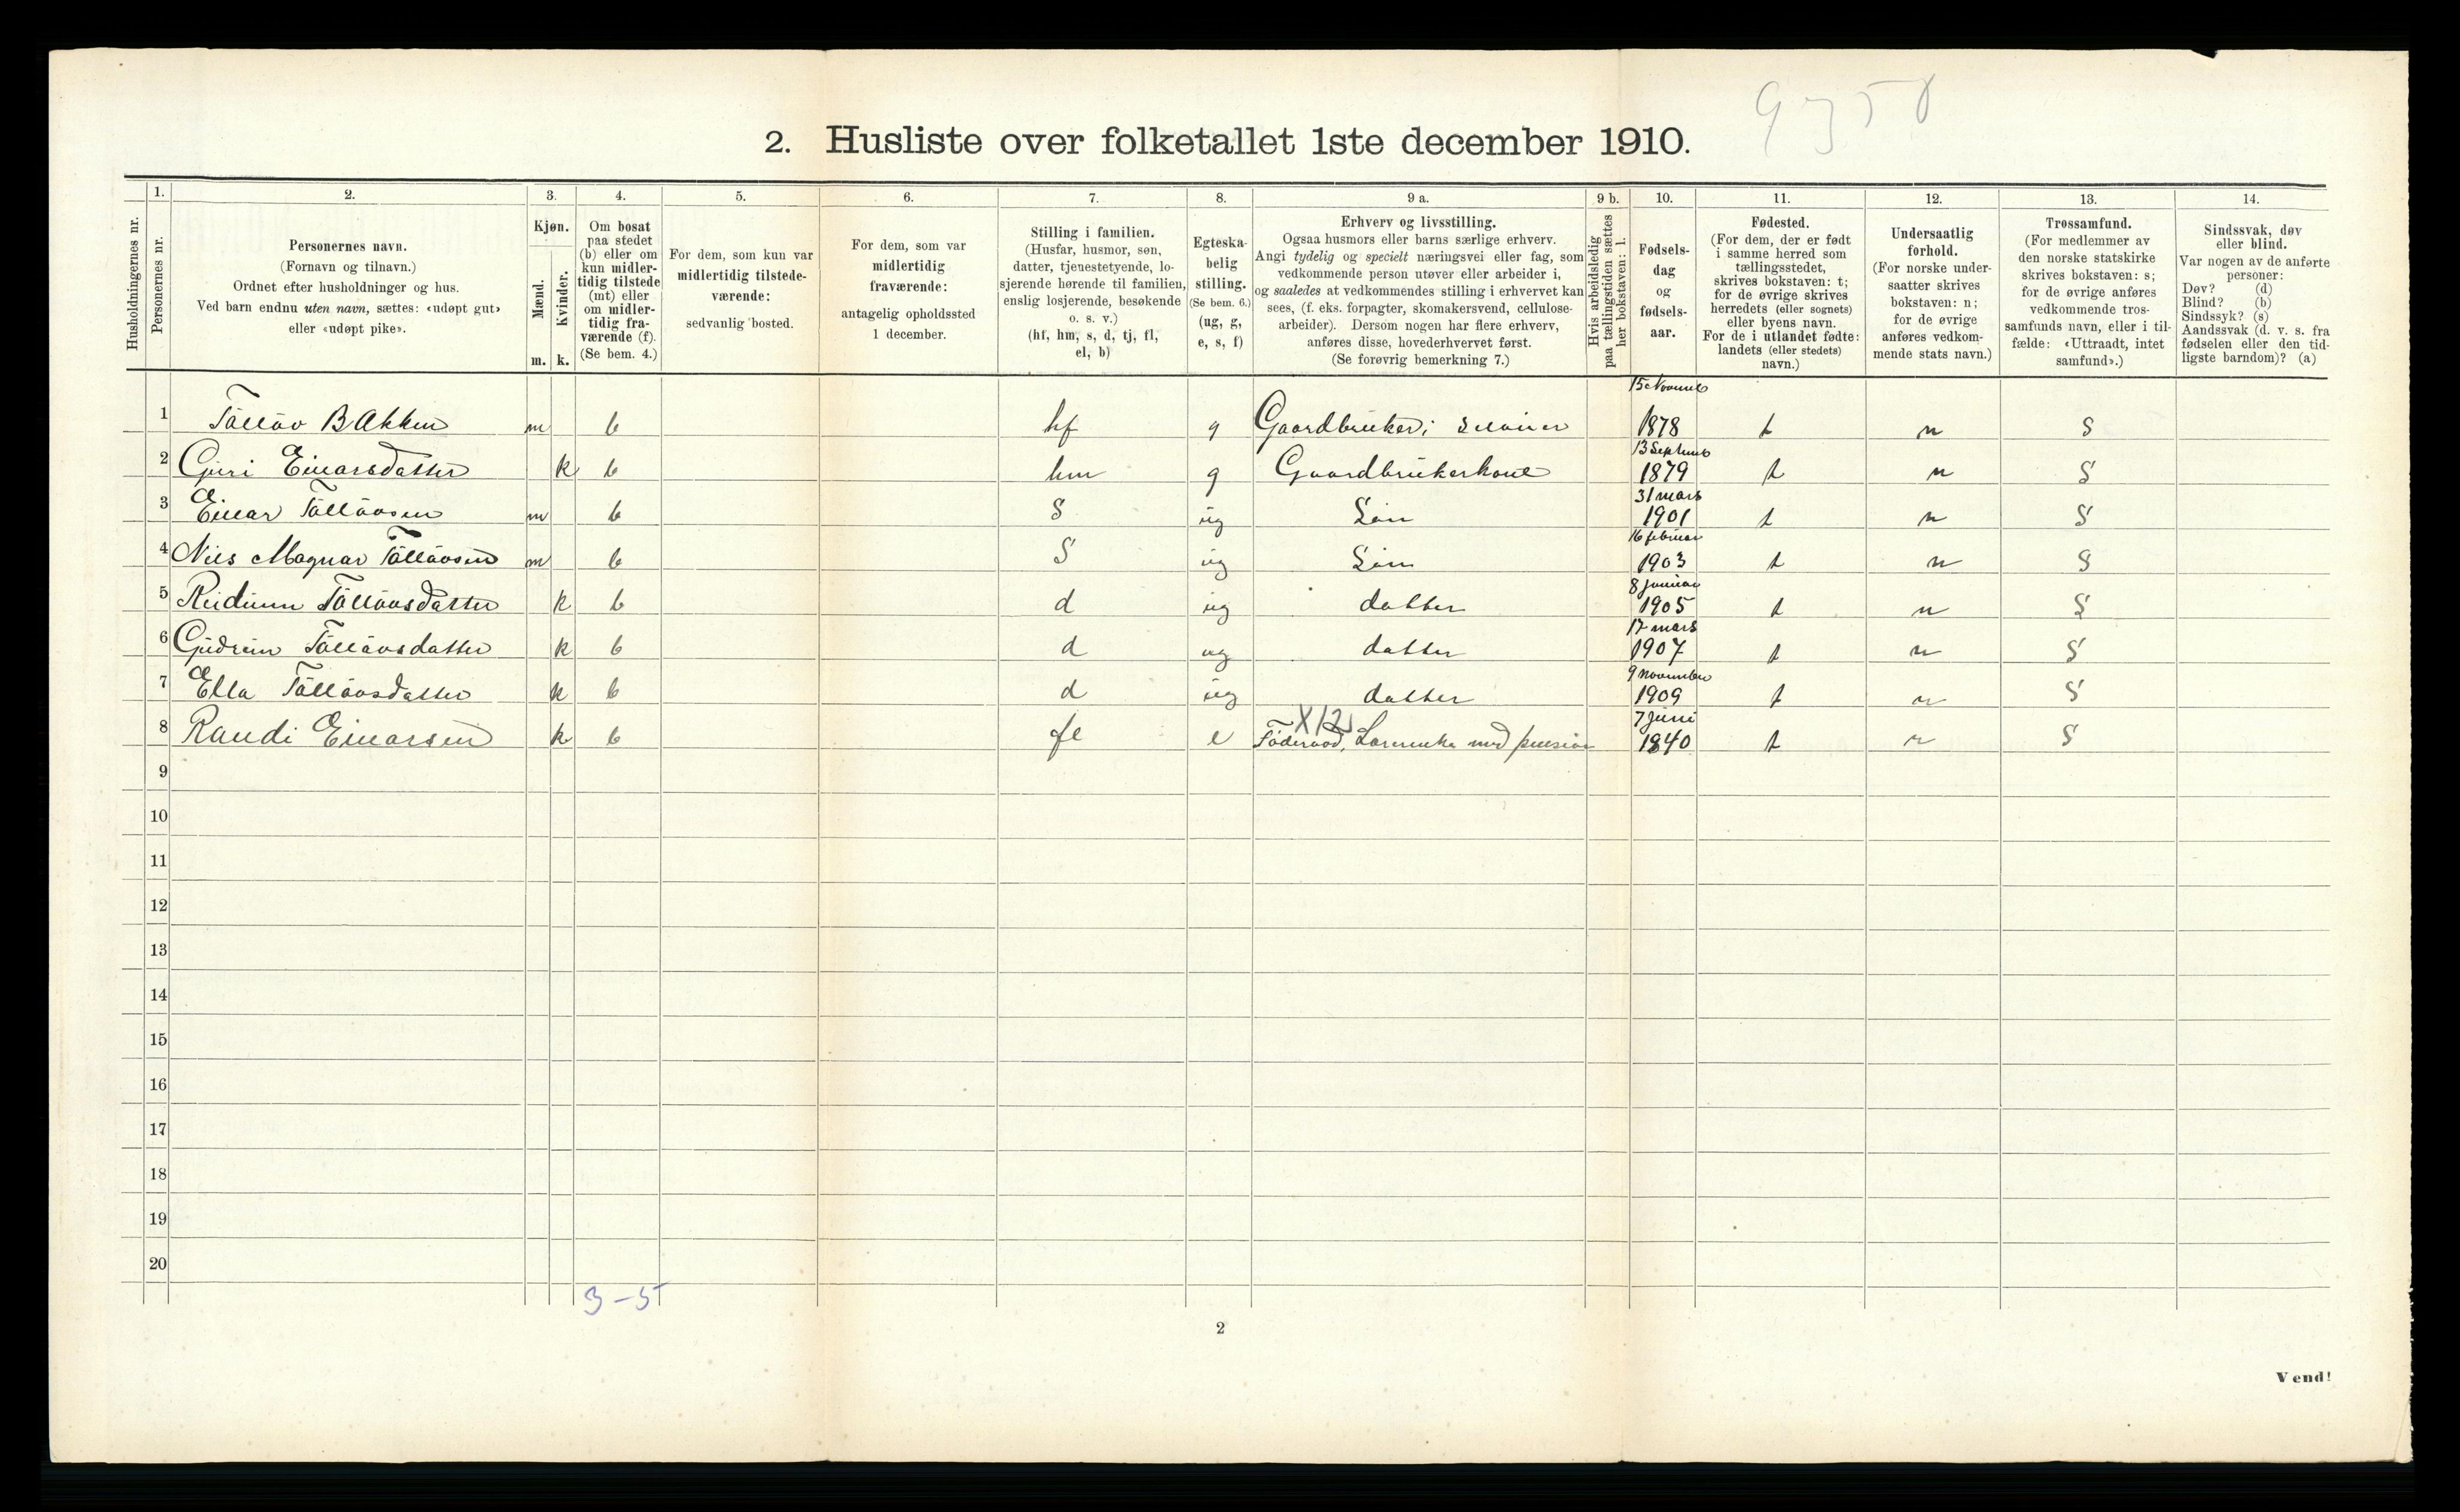 9758
2. Husliste over folketallet 1ste december 1910.
Husholdningernes nr.
1.
Personernes nr.
2.
Personernes navn.
(Fornavn og tilnavn.)
Ordnet efter husholdninger og hus.
Ved barn endnu uten navn, sættes: «udøpt gut»
eller «udøpt pike».
3.
Kjøn.
Mænd.
Kvinder.
m. k.
4.
Om bosat
paa stedet
(b) eller om
kun midler-
tidig tilstede
(mt) eller
om midler-
tidig fra-
værende (f).
(Se bem. 4.)
5.
For dem, som kun var
midlertidig tilstede-
værende:
sedvanlig bosted.
6.
For dem, som var
midlertidig
fraværende:
antagelig opholdssted
1 december.
7.
Stilling i familien.
(Husfar, husmor, søn,
datter, tjenestetyende, lo-
sjerende hørende til familien,
enslig losjerende, besøkende
o. s. v.)
(hf, hm, s, d, tj, fl,
el, b)
8.
Egteska-
belig
stilling.
(Se bem. 6.)
(ug, g,
e, s, f)
9 a.
Erhverv og livsstilling.
Ogsaa husmors eller barns særlige erhverv.
Angi tydelig og specielt næringsvei eller fag, som
vedkommende person utøver eller arbeider i,
og saaledes at vedkommendes stilling i erhvervet kan
sees, (f. eks. forpagter, skomakersvend, cellulose-
arbeider). Dersom nogen har flere erhverv,
anføres disse, hovederhvervet først.
(Se forøvrig bemerkning 7.)
9 b.
Hvis arbeidsledig
paa tællingstiden sættes
her bokstaven: l.
10.
Fødsels-
dag
og
fødsels-
aar.
11.
Fødested.
(For dem, der er født
i samme herred som
tællingsstedet,
skrives bokstaven: t;
for de øvrige skrives
herredets (eller sognets)
eller byens navn.
For de i utlandet fødte:
landets (eller stedets)
navn.)
12.
Undersaatlig
forhold.
(For norske under-
saatter skrives
bokstaven: n;
for de øvrige
anføres vedkom-
mende stats navn.)
13.
Trossamfund.
(For medlemmer av
den norske statskirke
skrives bokstaven: s;
for de øvrige anføres
vedkommende tros-
samfunds navn, eller i til-
fælde: «Uttraadt, intet
samfund».)
14.
Sindssvak, døv
eller blind.
Var nogen av de anførte
personer:
Døv? (d)
Blind? (b)
Sindssyk? (s)
Aandssvak (d. v. s. fra
fødselen eller den tid-
ligste barndom)? (a)
1 Tølløv B Akken m b hf g Gaardbruker i 1878 t n s
2 Guri Einarsdatter k b hm g Gaardbrukerkone 13 Septemb 1879 t n s
3 Einar Tølløvsen m b s ug Søn 31 mars 1901 t n s
4 Nils Magnar Tølløvsen m b s ug Søn 16 februar 1903 t n s
5 Reidunn Tølløvsdatter k b d ug datter 8 januar 1905 t n s
6 Gudrun Tølløvsdatter k b d ug datter 17 mars 1907 t n s
7 Ella Tølløvsdatter k b d ug datter 9 november 1909 t n s
X12
8 Randi Einarsen k b fl e Føderaad, med pension 7 Juni 1840 t n s
9
10
11
12
13
14
15
16
17
18
19
20
3-5
2
Vend!